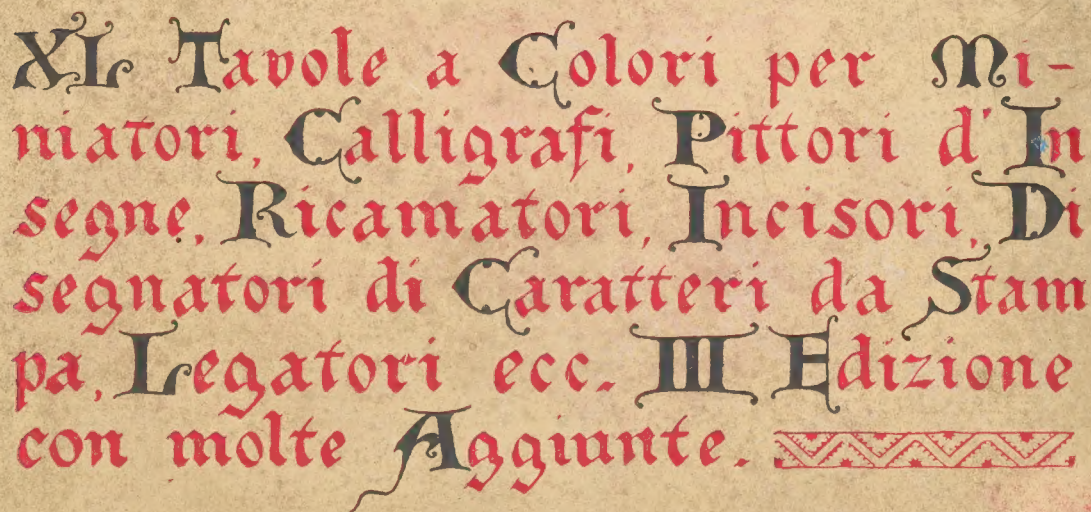 XL Tavole a Colori per Mi-
niatori, Calligrafi, Pittori d'In
segne, Ricamatori, Incisori, Di
segnatori di Caratteri da Stam
pa, Legatori ecc. III Edizione
con molte Aggiunte.